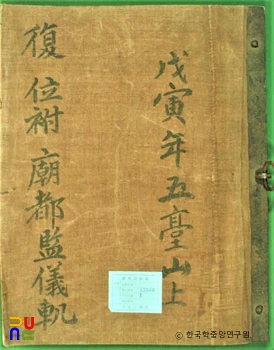 戊寅年五臺山上
復位祔廟都監儀軌
한국학중앙연구원